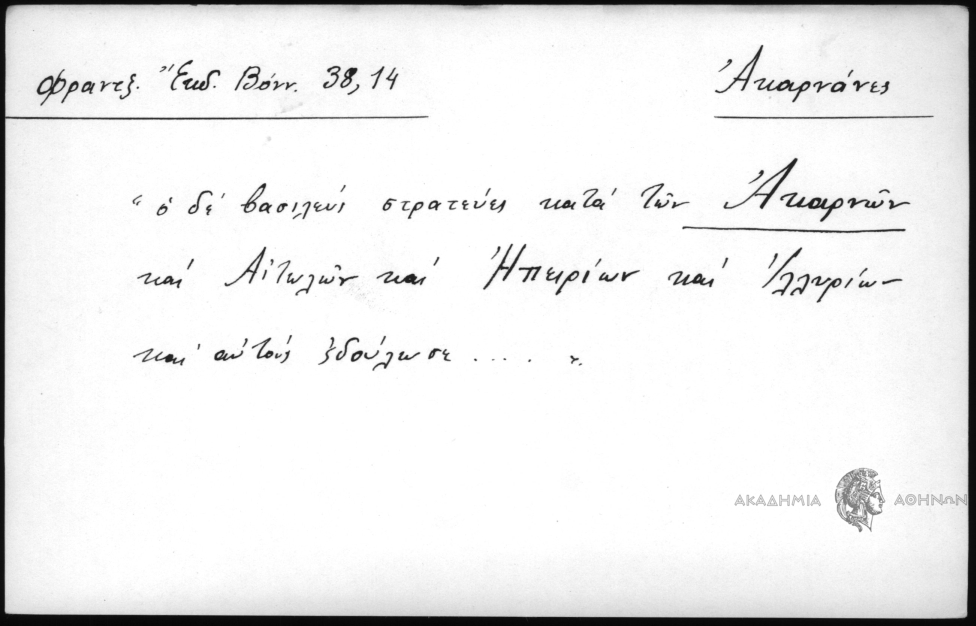 Φραντζ. Ἔκδ. Βόνν. 38,14
Ἀκαρνᾶνες
"ὁ δὲ βασιλεὺς στρατεύσς κατὰ τῶν Ἀκαρνῶν
καὶ Αἰτωλῶν καὶ Ἠπειρίων καὶ Ἰλλυρίων
καὶ αὐτοὺς ἐδούλωσε .... ".
ΑΚΑΔΗΜΙΑ ΑΘΗΝΩΝ